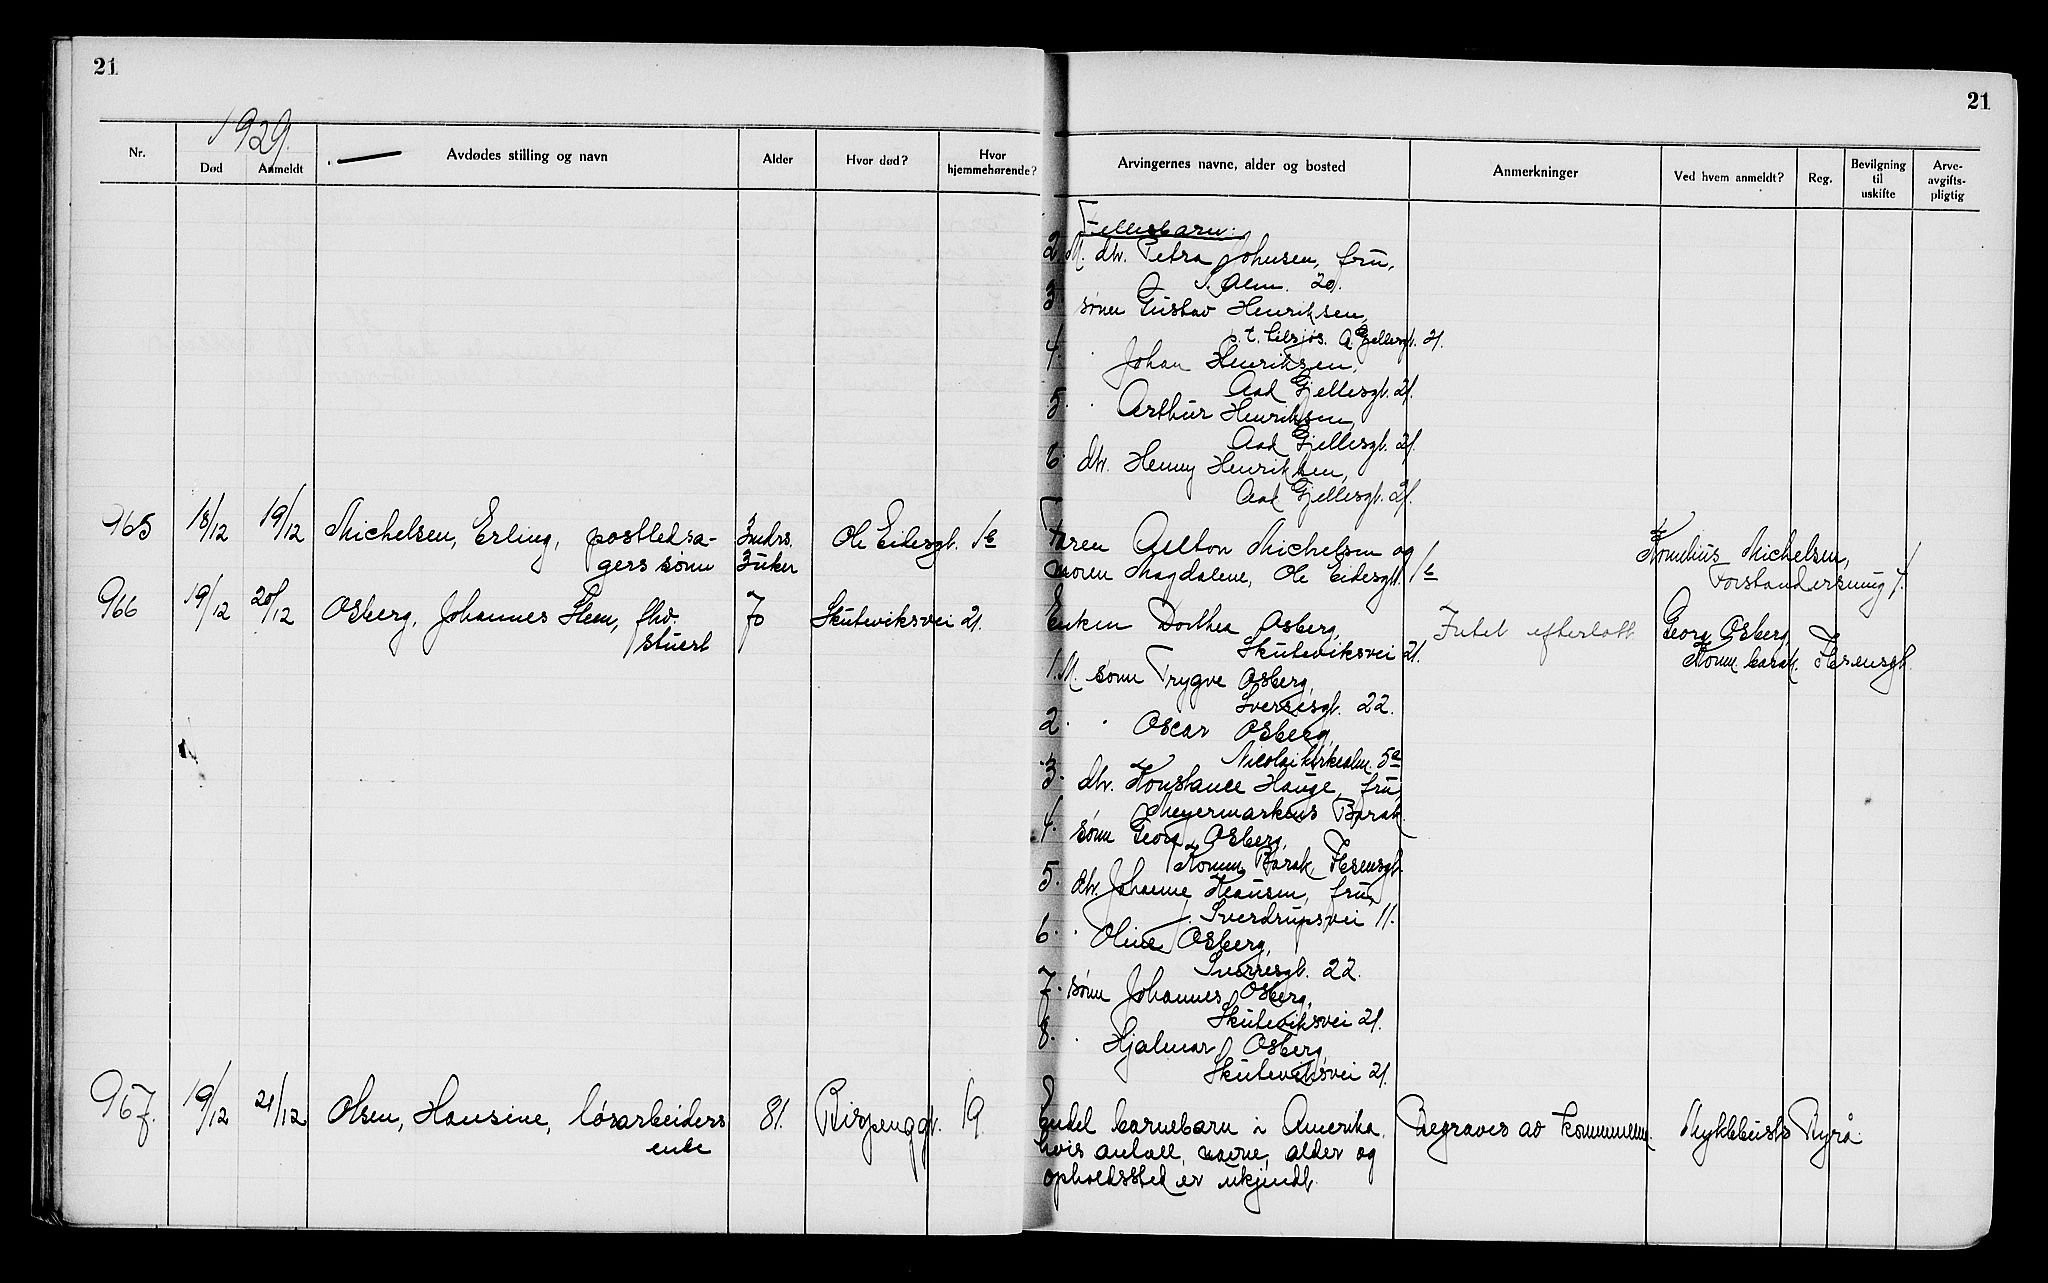 21
21
1929.
Nr.
Død
Anmeldt
Avdødes stilling og navn
Alder
Hvor død?
Hvor hjemmehørende?
Arvingernes navne, alder og bosted
Anmerkninger
Ved hvem anmeldt?
Reg.
Bevilgning til uskifte
Arve-avgifts-pligtig
Fellesbarn:
2. M. dtr. Petra Johnsen, fru,
alm. 20.
3. sønn Gustav Henriksen,
Gjellesgt. 21.
4. " Johan Henriksen,
Aad Gjellesgt. 21.
5. " Arthur Henriksen,
Aad Gjellesgt. 21.
6. dtr. Henny Henriksen,
Aad Gjellesgt. 21.
965 18/12 19/12 Michelsen, Erling, postledsa- 3 mdrs. Ole Eidesgt. 1c Faren Michelsen og Kornelius Michelsen,
gers sønn 3 uker moren Magdalene, Ole Eidesgt. 1c Forstandersmug 4.
966 19/12 20/12 Osberg, Johannes Steen, fhv. 70 Skuteviksvei 21. Enken Dorthea Osberg, Intet efterlatt Georg Osberg
stuert Skuteviksvei 21. Komm. barak
1. M. sønn Trygve Osberg,
Sverresgt. 22.
2. " Oscar Osberg,
Nicolaikirkealm. 5a
3. dtr. Konstance Hauge, fru
Meyermarkens Barak.
4. sønn Georg Osberg,
Komm. Barak
5. dtr. Johanne Hansen, fru,
J. Sverdrupsvei 11.
6. " Oline Osberg,
Sverresgt. 22.
7. sønn Johannes Osberg,
Skuteviksvei 21.
8. " Hjalmar Osberg,
Skuteviksvei 21.
967. 19/12 21/12 Olsen, Hansine, løsarbeiders 81. Bispenggt. 19. Endel barnebarn i Amerika Begraves av kommunen. Myklebusts Byrå
enke hvis antall, navne, alder og
opholdssted er ukjendt.